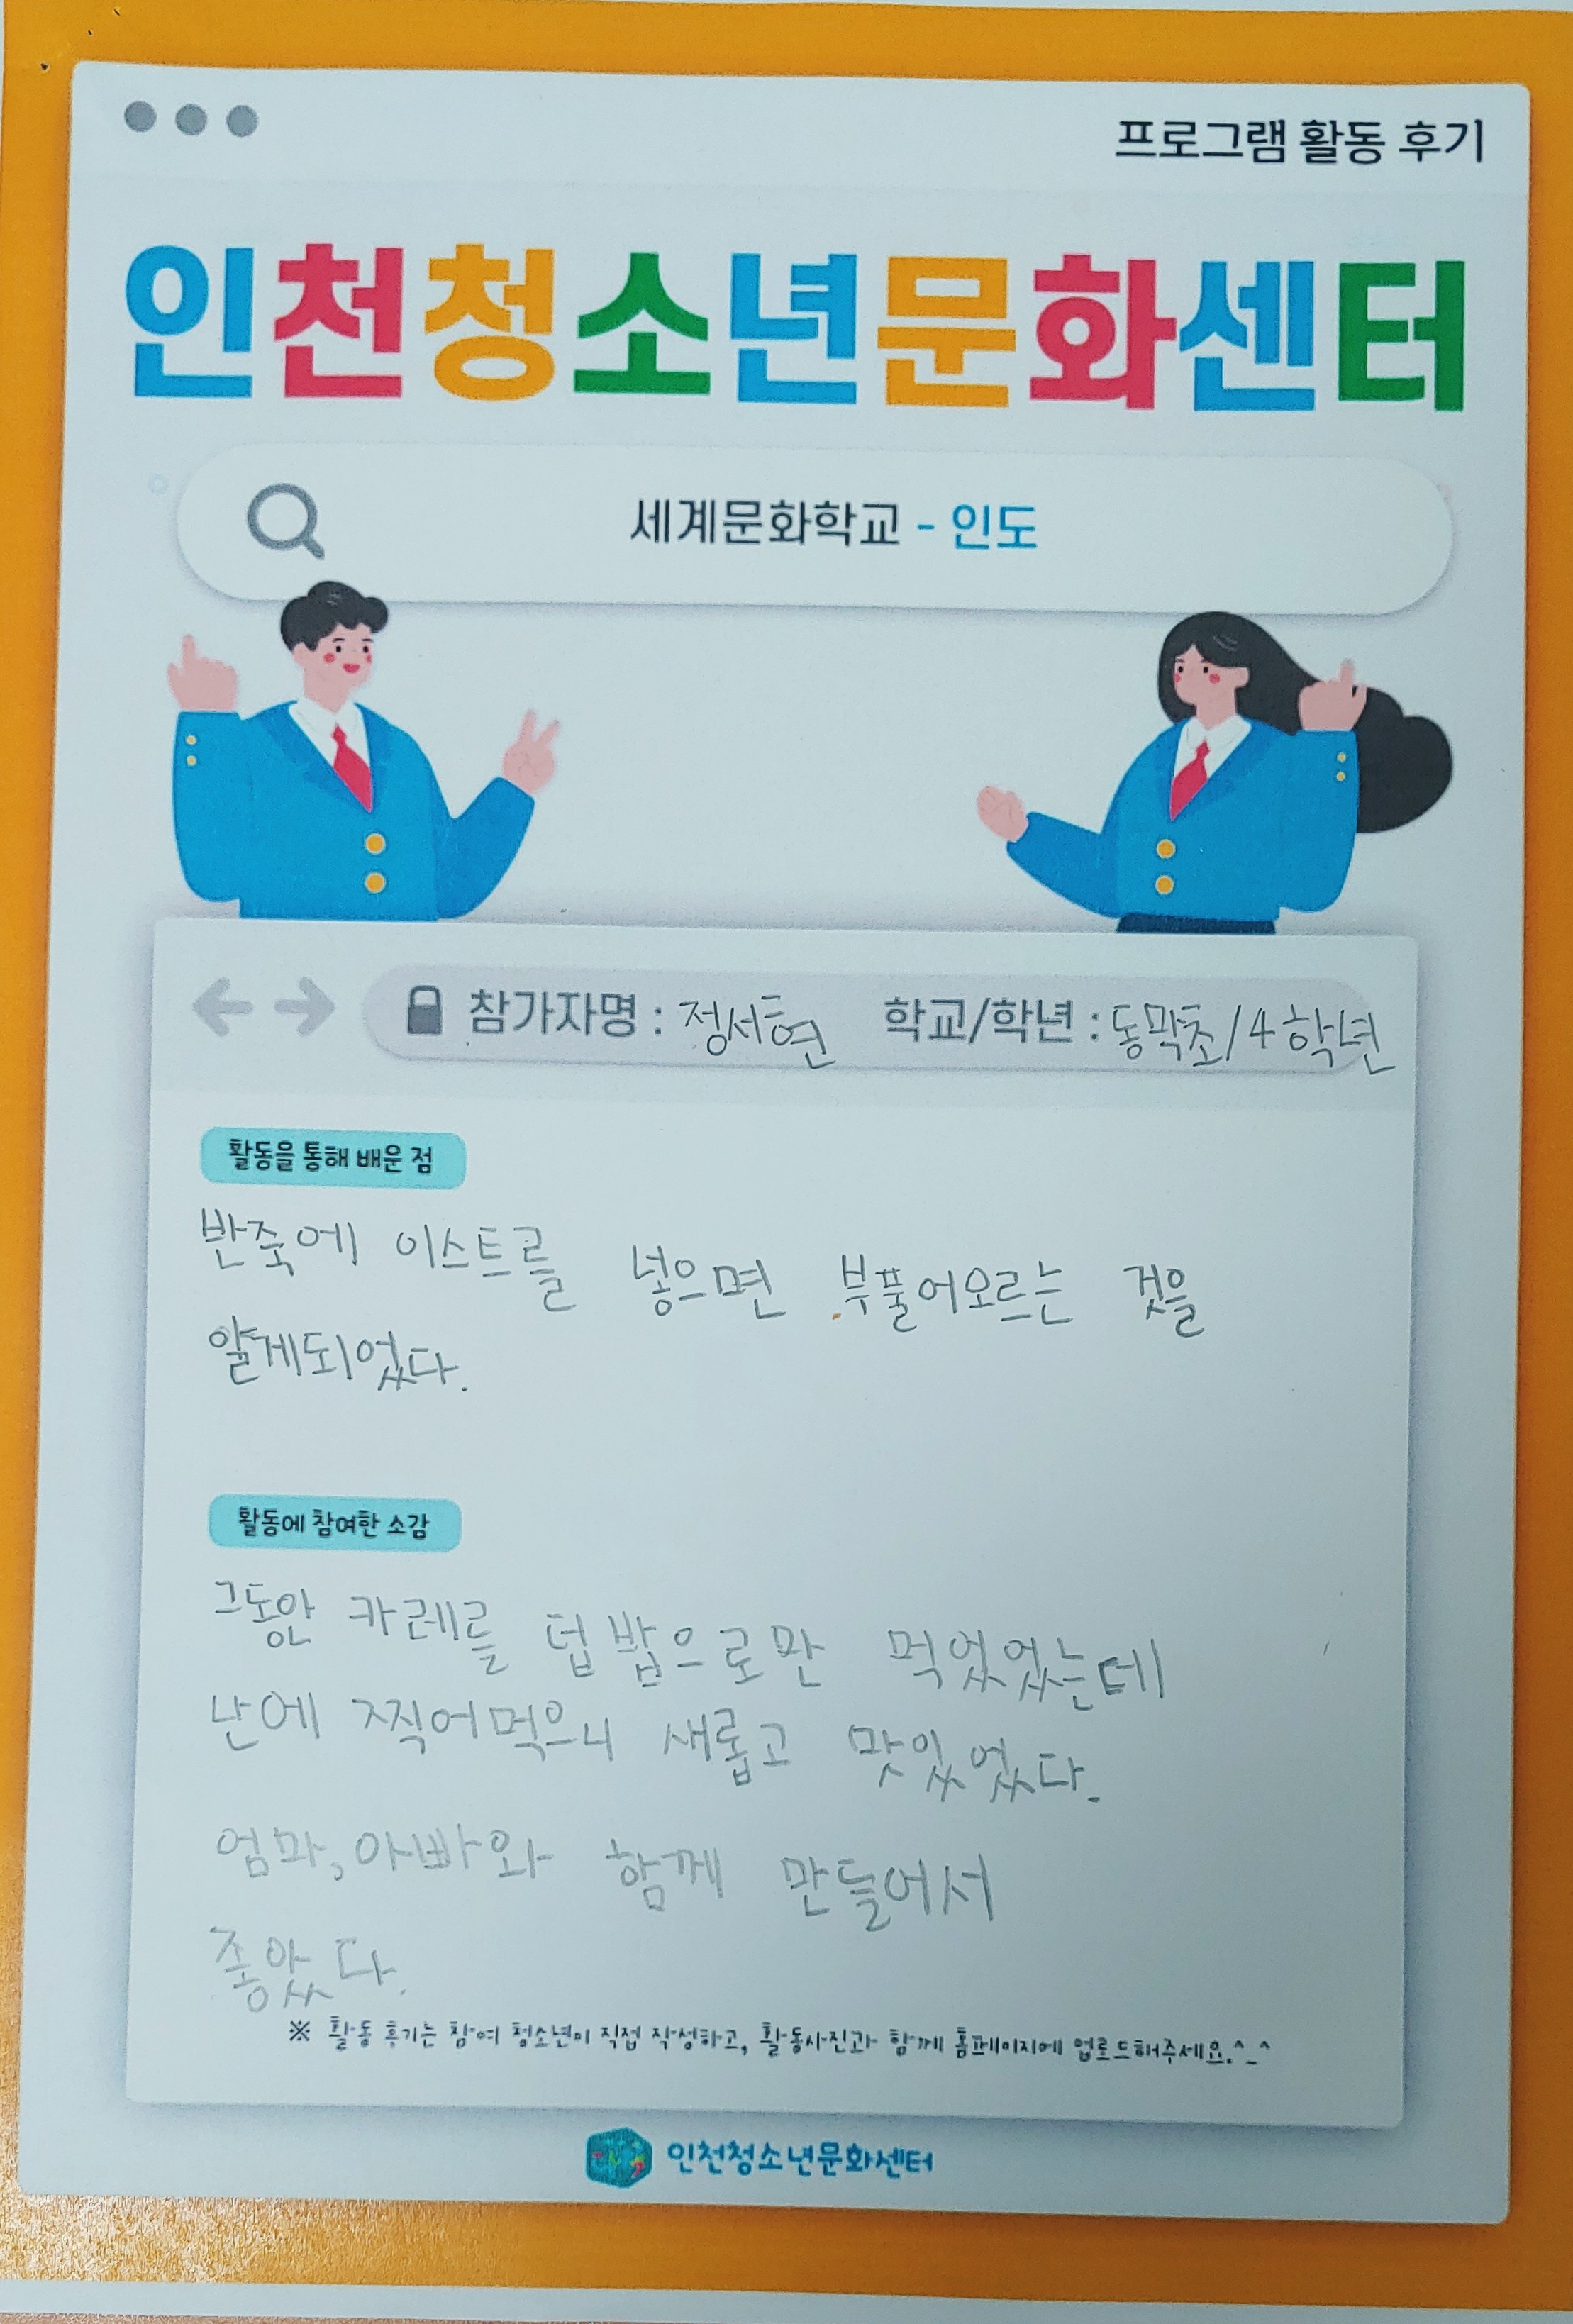 프로그램 활동 후기
인천청소년문화센터
세계문화학교 - 인도
참가자명 : 정서현 학교/학년 : 동막초/4학년
활동을 통해 배운 점
반죽에 이스트를 넣으면 부풀어오르는 것을
알게되었다.
활동에 참여한 소감
그동안 카레를 덥밥으로만 먹었었는데
난에 찍어먹으니 새롭고 맛있었다.
엄마,아빠와 함께 만들어서
좋았다.
※ 활동 후기는 참여 청소년이 직접 작성하고, 활동사진과 함께 홈페이지에 업로드해주세요.^_^
인천청소년문화센터